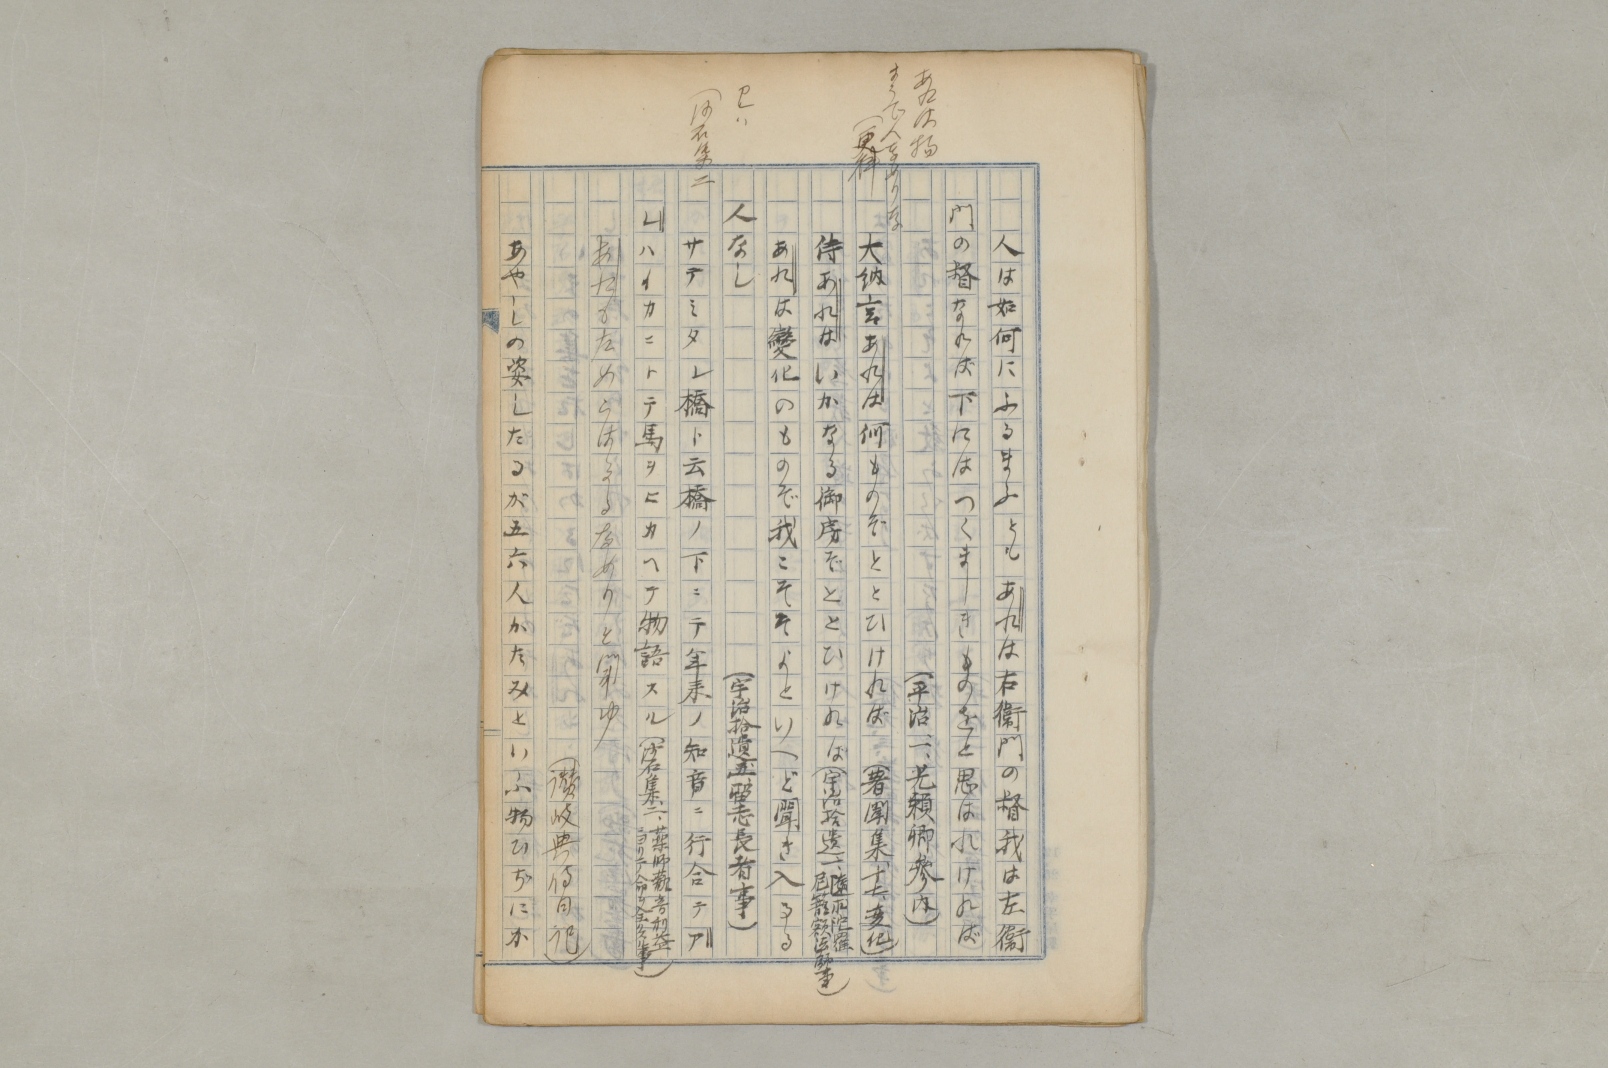 あれは物
人は如何にふるまふともあれは右衛門の督我は左衛
門の督なれば下にはつくましきものをと思はれければ
(平治一、光頼卿参内)
大納言あれは何ものぞととひければ(著聞集、十七、変化)
侍あれはいかなる御房ぞととひければ(宇治拾遺一、
あれは變化のものぞ我こそそよといへど聞き入るる
人なし
(宇治拾遺五 留志長者事)
サテミタレ橋ト云橋ノ下ニテ年来ノ知音ニ行合テア
レハイカニトテ馬ヲヒカヘテ物語スル(沙石集二、薬師観音利益
ヨリテ命ヲ全クル事)
(沙石集二
と聞ゆ
(讃岐典侍日記)
あやしの姿したるが五六人かたみといふ物ひぢにか